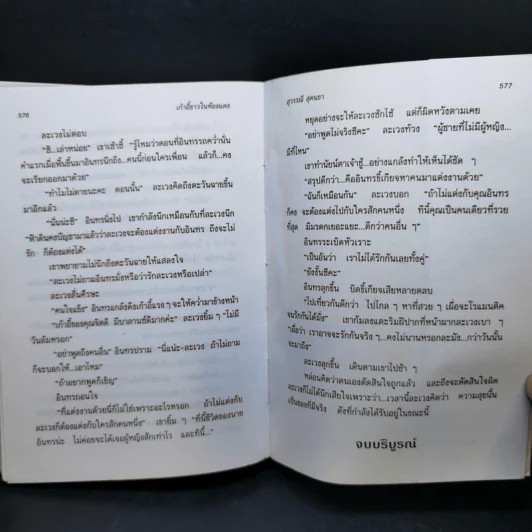 576
เก้าอี้ขาวในห้องแดง
ละเวงไม่ตอบ
"ซี...เล่าหน่อย" เขาเซ้าซี้ "รู้ไหมว่าตอนที่อินทรรถคว่ำนั่น
คำแรกเมื่อฟื้นขึ้นมาอินทรนึกถึง...คนนี้ก่อนใครเพื่อน แล้วก็...คง
จะเรียกออกมาด้วย"
"ทำไมไม่ตายนะคะ ตอนนั้น" ละเวงคิดถึงตะวันฉายขึ้น
มาอีกแล้ว
"นั่นน่ะซี" อินทรนิ่งไป เขากำลังนึกเหมือนกับที่ละเวงนึก
"ฟ้าดินคงบัญชามาแล้วว่าละเวงจะต้องแต่งงานกับอินทร ถึงจะไม่
รัก ก็ต้องแต่งได้"
เขาพยายามไม่นึกถึงตะวันฉายให้แสลงใจ
"ละเวงไม่ถามอินทรมั่งหรือว่ารักละเวงหรือเปล่า"
ละเวงสั่นศีรษะ
"คนใจแข็ง" อินทรแกล้งดึงเก้าอี้แรง ๆ จะให้คว่ำมาข้างหน้า
"เก้าอี้ของคุณจิตติ มีบาลานซ์ดีมากค่ะ" ละเวงยิ้ม ๆ "ไม่มี
วันล้มหรอก"
"อย่าพูดถึงคนอื่น" อินทรปราม "นี่แน่ะ-ละเวง ถ้าไม่ถาม
ก็จะบอกให้...เอาไหม"
"ถ้าอยากพูดก็เชิญ"
อินทรถอนใจ
"ที่แต่งงานด้วยนี่ก็ไม่ใช่เพราะอะไรหรอก ถ้าไม่แต่งกับ
ละเวงก็ต้องแต่งกับใครสักคนหนึ่ง" เขายิ้ม ๆ "ที่นี่ชีวิตของนาย
อินทรน่ะ ไม่ค่อยจะได้เจอผู้หญิงสักเท่าไร และทีนี้..."
577
สุวรรณี สุคนธา
หยุดอย่างจะให้ละเวงซักไซ้ แต่ก็ผิดหวังตามเคย
"อย่าพูดไม่จริงซีคะ" ละเวงท้วง "ผู้ชายที่ไม่มีผู้หญิง...
มีที่ไหน"
เขาทำนัยน์ตาเจ้าชู้...อย่างแกล้งทำให้เห็นได้ชัด ๆ
"สรุปดีกว่า...คืออินทรขี้เกียจหาคนมาแต่งงานด้วย"
"ฉันก็เหมือนกัน" ละเวงบอก "ถ้าไม่แต่งกับคุณอินทร
ก็คง จะต้องแต่งไปกับใครสักคนหนึ่ง ทีนี้คุณเป็นคนเดียวที่รวย
ที่สุด มีมรดกเยอะแยะ...ดีกว่าคนอื่น ๆ"
อินทรระเบิดหัวเราะ
"เป็นอันว่า เราไม่ได้รักกันเลยทั้งคู่"
"ยังงั้นซีคะ"
อินทรลุกขึ้น บิดขี้เกียจเสียหลายตลบ
"ไปเที่ยวกันดีกว่า ไปไกล ๆ หาที่สวย ๆ เผื่อจะโรแมนติค
จนรักกันได้มั่ง" เขาก้มลงแตะริมฝีปากที่หน้าผากละเวงเบา ๆ
"เผื่อว่า เราอาจจะรักกันจริง ๆ...คงไม่นานหรอกละมัง...กว่าวันนั้น
จะมาถึง"
ละเวงลุกขึ้น เดินตามเขาไปช้า ๆ
หล่อนคิดว่าตนเองตัดสินใจถูกแล้ว และถึงจะตัดสินใจผิด
ละเวงก็ไม่ได้นึกเสียใจเพราะว่า...เวลานี้ละเวงคิดว่า ความสุขนั้น
เป็นของที่มีจริง ดังที่กำลังได้รับอยู่ในขณะนี้
จบบริบูรณ์